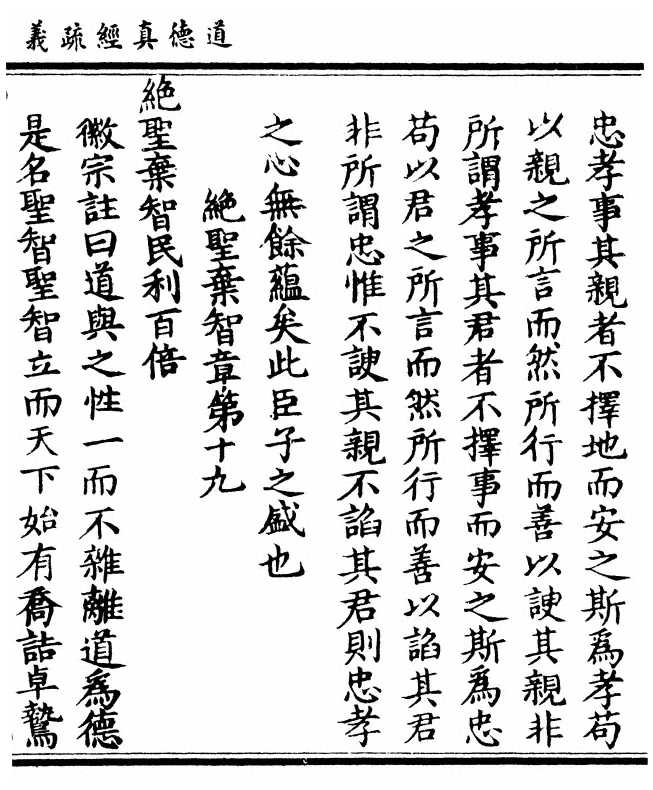 道德真經疏義
忠孝事其親者不擇地而安之斯爲孝苟
以親之所言而然所行而善以諛其親非
所謂孝事其君者不擇事而安之斯爲忠
苟以君之所言而然所行而善以諂其君
非所謂忠惟不諛其親不諂其君則忠孝
之心無餘蘊矣此臣子之盛也
絶聖棄智章第十九
絶聖棄智民利百倍
徽宗註曰道與之性一而不雜離道爲德
是名聖智聖智立而天下始有喬詰卓鷙